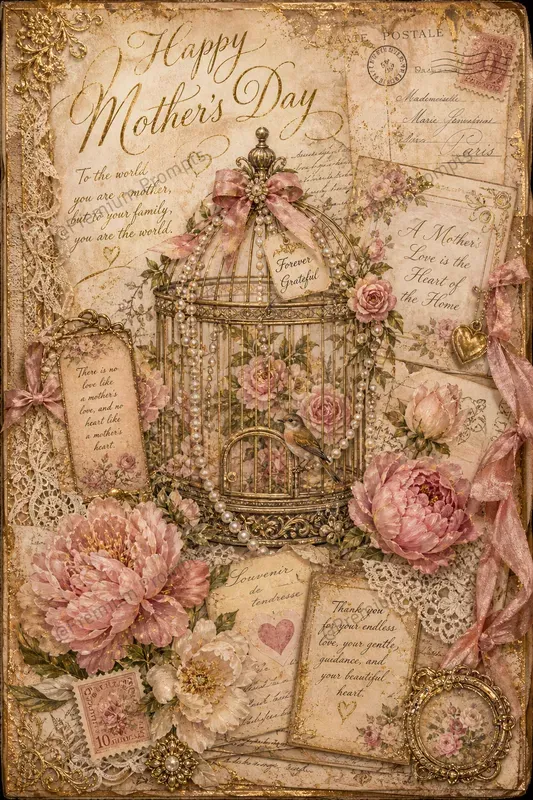 Happy
Mother's Day
To the world
you are a mother,
but to your family,
you are the world.
CARTE POSTALE
Mademoiselle
Marie
Paris
Forever
Grateful
A Mother's
Love is the
Heart of
the Home
There is no
love like
a mother's
love, and no
heart like
a mother's
heart.
Souvenir
de
tendresse
Thank you
for your endless
love, your gentle
guidance, and
your beautiful
heart.
10